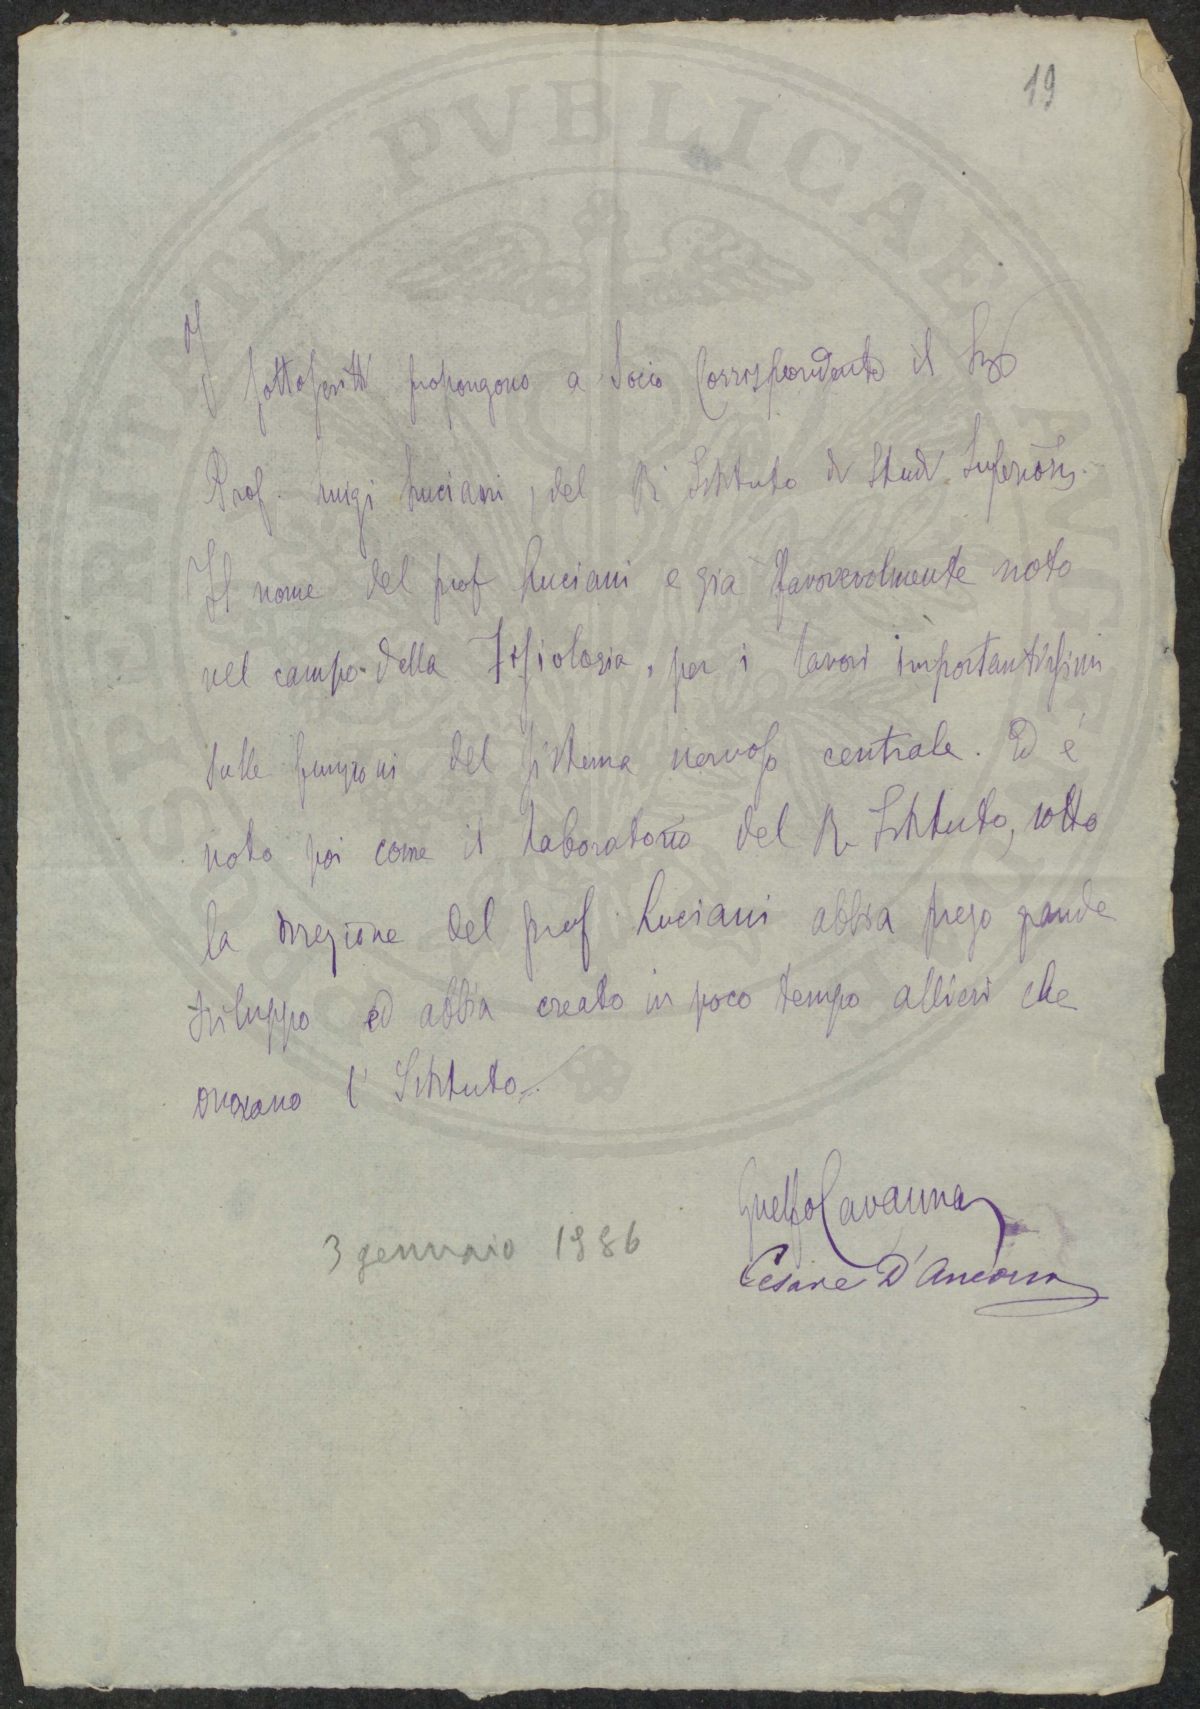 19
I sottoscritti propongono a Socio Corrispondente il Sig.
Prof. Luigi Luciani, del R. Istituto di Studi Superiori.
Il nome del prof Luciani e già favorevolmente noto
nel campo della Fisiologia, per i lavori importantissimi
sulle funzioni del sistema nervoso centrale. Ed è
noto poi come il laboratorio del R. Istituto, sotto
la direzione del prof. Luciani abbia preso grande
sviluppo ed abbia creato in poco tempo allievi che
onorano l'Istituto.
Guelfo Cavanna
3 gennaio 1886
Cesare D'Ancona
PVBLICAE